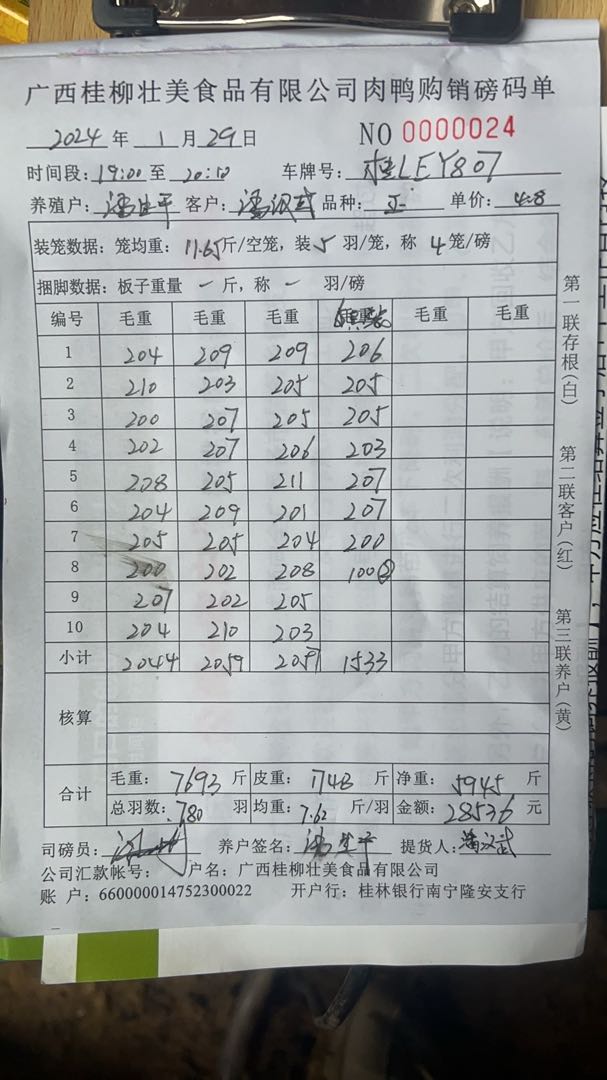 广西桂柳壮美食品有限公司肉鸭购销磅码单
2024 年 1 月 29 日 NO 0000024
时间段: 19:00 至 20:10 车牌号: 桂LEY807
养殖户: 客户: 潘汉武 品种: 单价: 4.8
装笼数据: 笼均重: 11.65 斤/空笼, 装 5 羽/笼, 称 4 笼/磅
捆脚数据: 板子重量 一 斤, 称 一 羽/磅
编号 毛重 毛重 毛重 毛重 毛重
1 204 209 209 206
2 210 203 205 205
3 200 207 205 205
4 202 207 206 203
5 208 205 211 207
6 204 209 201 207
7 205 205 204 200
8 200 202 208 100②
9 207 202 205
10 204 210 203
小计 2044 2059 2057 1533
核算
合计 毛重: 7693 斤 皮重: 1748 斤 净重: 5945 斤
总羽数: 780 羽 均重: 7.62 斤/羽 金额: 28536 元
司磅员: 养户签名: 提货人: 潘汉武
公司汇款帐号: 户名: 广西桂柳壮美食品有限公司
账 户: 660000014752300022 开户行: 桂林银行南宁隆安支行
第一联存根(白)
第二联客户(红)
第三联养户(黄)